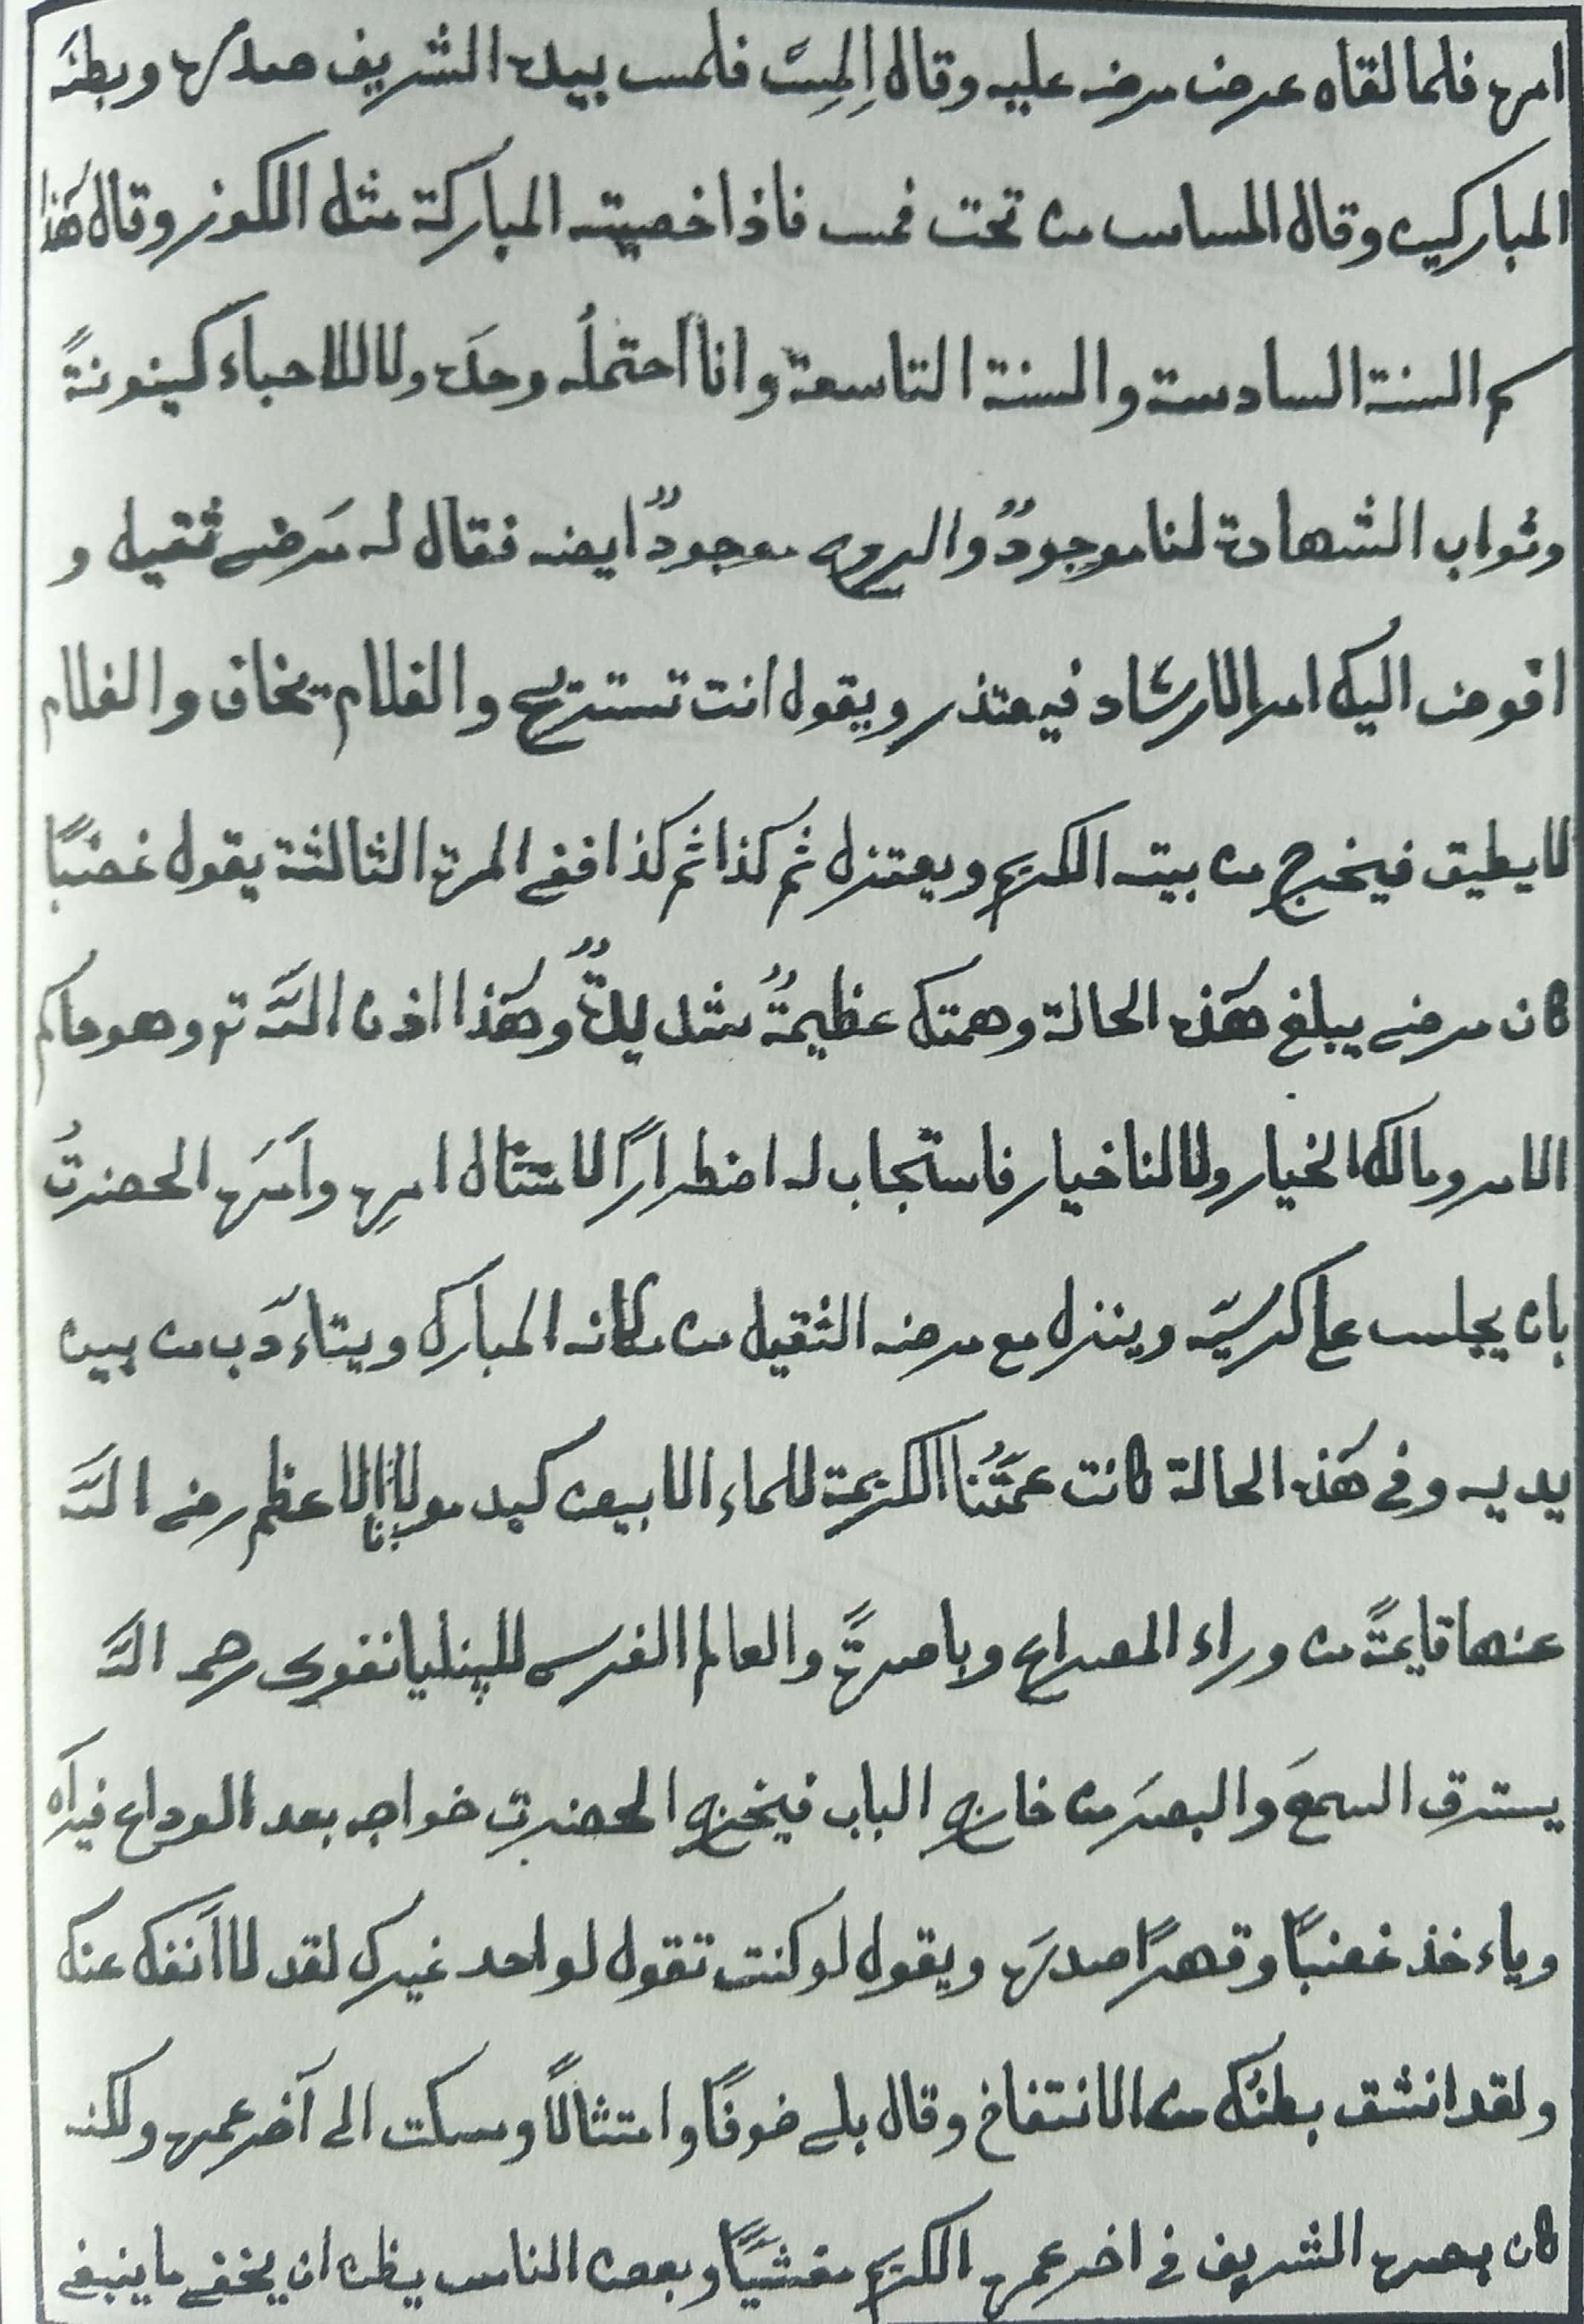 امره فلما لقاه عرض مرضه عليه وقال اِلمِسّ فلمس بيده الشريف صدره وبطنَه
المباركين وقال المساس من تحت فمس فاذا خصيته المباركة مثل الكوز وقال هَذا
كم السنة السادسة والسنة التاسعة وانا احتملُه وحدَه ولا للاحباء كينونةً
وثواب الشهادة لنا موجودٌ والبروج موجودٌ ايضه فقال له مَرضے ثقيل و
افوض اليك امر الارشاد فيعتذر ويقول انت تستريح والغلام يخاف والغلام
لا يطيق فيخرج من بيته الكريم ويعتزل ثم كذا ثم كذا ففي المرة الثالثة يقول غضبًا
كان مرضے يبلغ هَذه الحالة وهمتك عظيمةٌ شديدةٌ وهَذا اذن اللّه تع وهو حاكم
الامر ومالك الخيار ولا لنا خيار فاستجاب له اضطرارًا لامتثال امرِه وأمَره الحضرتُ
بان يجلس علے كرسيّه وينزل مع مرضه الثقيل من مكانه المبارك ويتاءدّب من بين
يديه وفى هَذه الحالة كانت عمَّتُنا الكريمة للماء الابيض كيد مولانا الاعظم رضے اللّه
عنها قايمةً من وراء المصراع وباصرةً والعالم الغرسے للپنليانغوى رحمه اللّه
يسترق السمعَ والبصرَ من خارج الباب فيخرج الحضرت خواجه بعد الوداع فيراَه
وياءخذ غضبًا وقهرًا صدرَه ويقول لو كنت تقول لواحد غيرك لقد لا اَنفك عنك
ولقد انشق بطنُك من الانتفاخ وقال بلے خوفًا وامتثالاً وسكت الى آخر عمره ولكنه
كان بصره الشريف فى اخر عمره الكريم مغشيًّا وبعض الناس يظن ان يخفے ما ينبغے